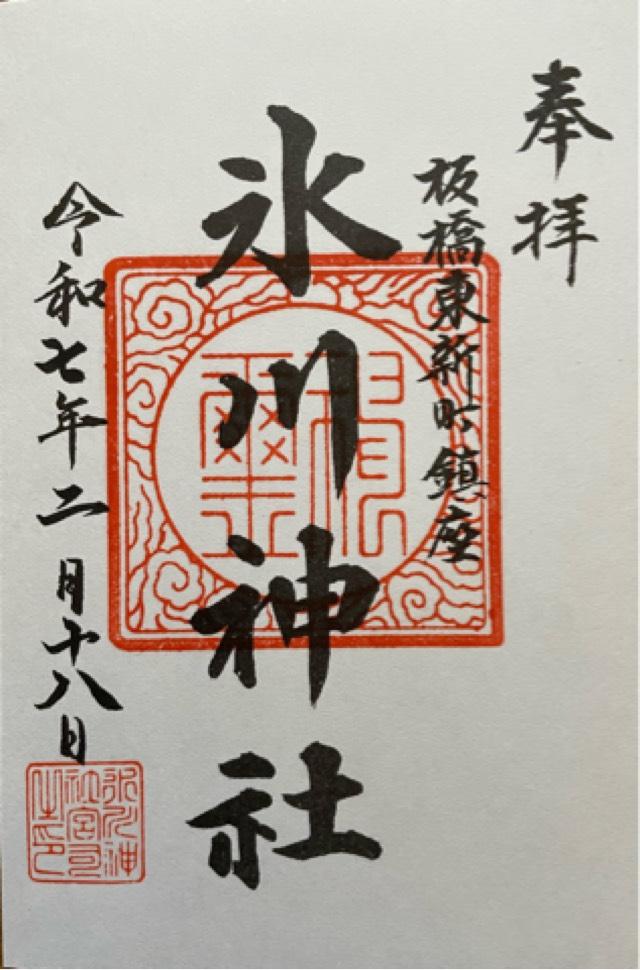 奉拝
板橋東新町鎮座
氷川神社
令和七年二月十八日
氷川神
社宮司
之印